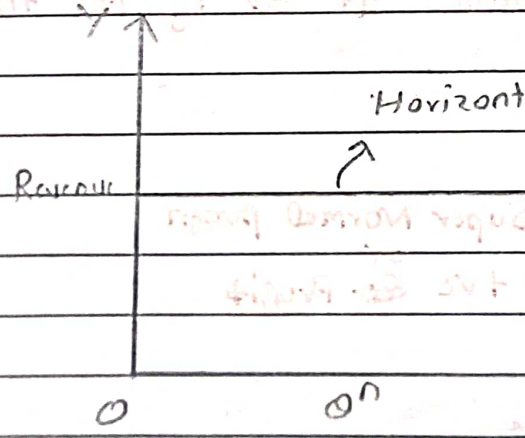 Y
Horizont
Revenue
O Qn